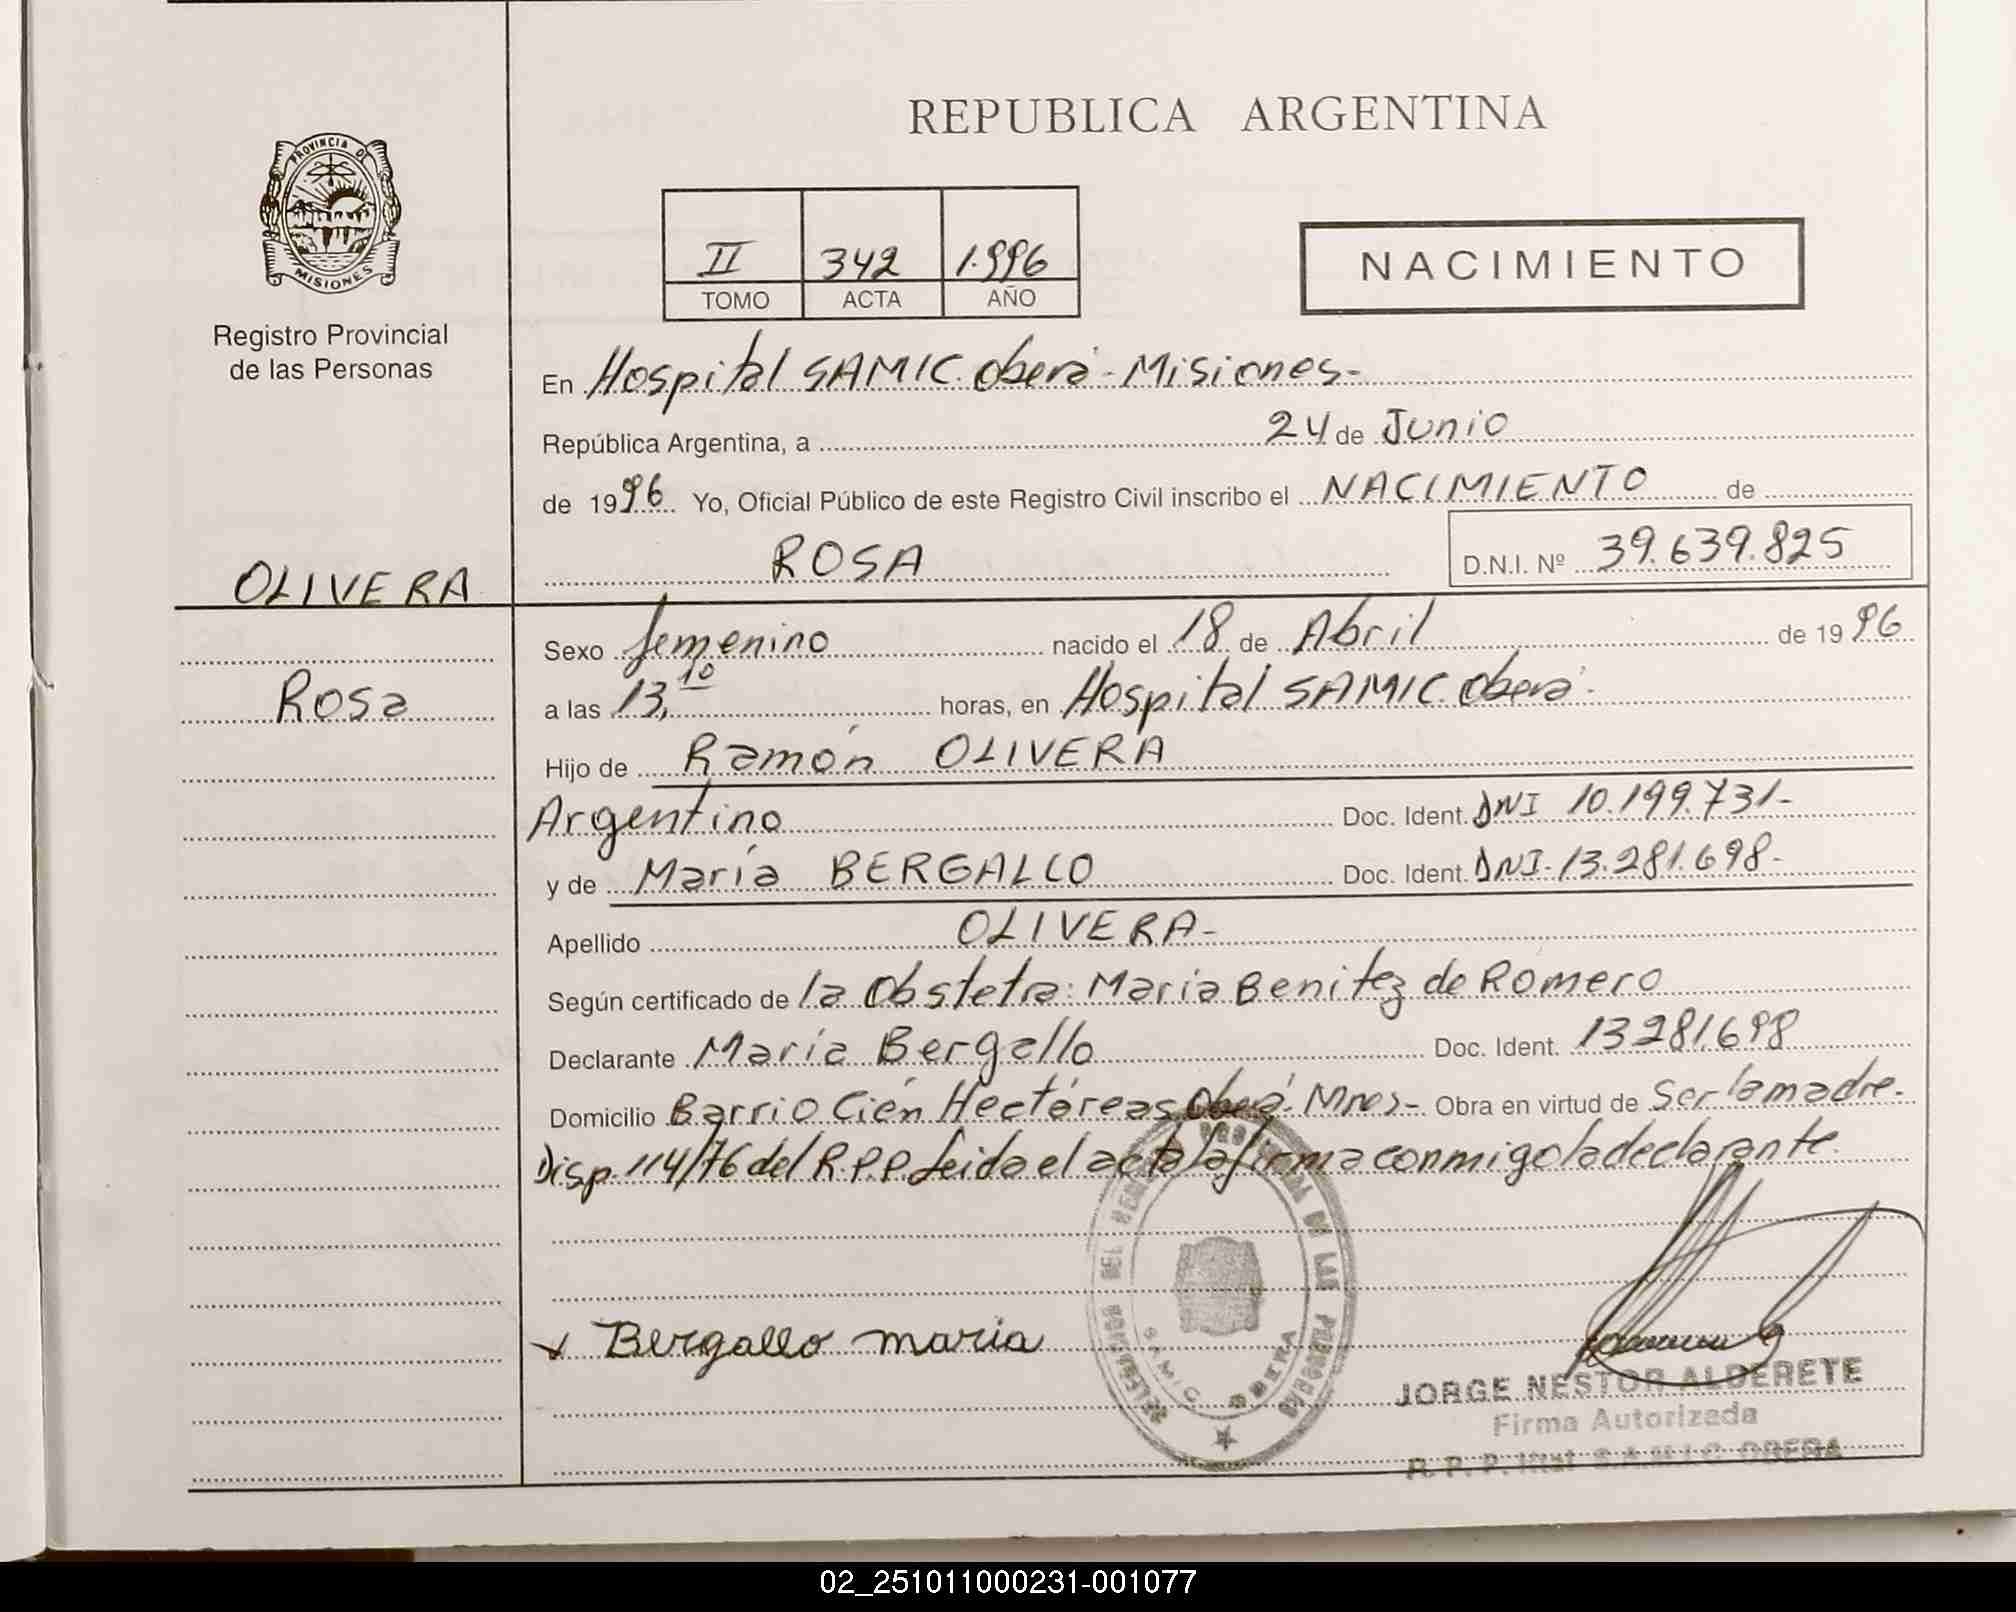 REPUBLICA ARGENTINA
PROVINCIA DE
MISIONES
Registro Provincial
de las Personas
II 342 1.996
TOMO ACTA AÑO
NACIMIENTO
En Hospital SAMIC. Oberá - Misiones-
República Argentina, a 24 de Junio
de 1996 Yo, Oficial Público de este Registro Civil inscribo el NACIMIENTO de
OLIVERA
ROSA D.N.I. Nº 39.639.825
Rosa
Sexo femenino nacido el 18 de Abril de 1996
a las 13,10 horas, en Hospital SAMIC. Oberá.
Hijo de Ramón OLIVERA
Argentino Doc. Ident. DNI 10.199.731-
y de María BERGALLO Doc. Ident. DNI-13.281.698-
Apellido OLIVERA-
Según certificado de la Obstetra: María Benitez de Romero
Declarante María Bergallo Doc. Ident. 13281.698
Domicilio Barrio Cién Hectáreas Oberá- Mnes- Obra en virtud de Ser la madre-
Disp. 114/76 del R.P.P. Leida el acta la firma conmigo la declarante.
Bergallo maria
DE LAS PERSONAS
S.A.M.I.C. OBERA
JORGE NESTOR ALDERETE
Firma Autorizada
R. P. P. S.A.M.I.C. OBERA
02_251011000231-001077